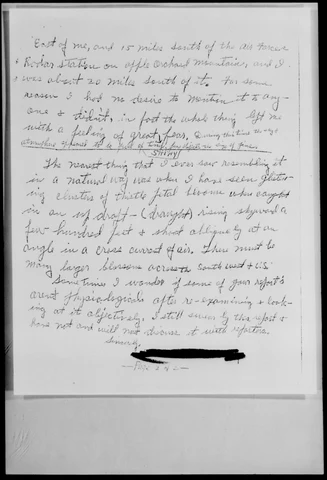 East of me, and 15 miles south of the Air Force
Radar Station on apple orchard mountain, and I
was about 20 miles south of it. For some
reason I had no desire to mention it to any-
one & didn't, in fact the whole thing left me
with a feeling of great fear. During this time my
Shiny
The nearest thing that I ever saw resembling it
in a natural way was when I have seen glisten-
ing clusters of thistle petal blooms when caught
in an up draft - (draught) rising skyward a
few hundred feet & shoot obliquely at an
angle in a cross current of air. There must be
many larger blossoms across south west U.S.
Sometimes I wonder if some of your reports
arent physiological after re-examining & look-
ing at it objectively. I still swear by this report &
have not and will not discuss it with reporters.
Sincerely,
- Page 2 of 2 -